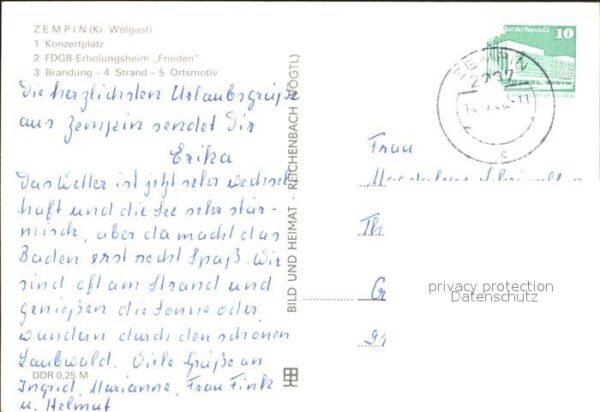 ZEMPIN (Kr. Wolgast)
1 Konzertplatz
2 FDGB-Erholungsheim „Frieden"
3 Brandung – 4 Strand – 5 Ortsmotiv
Die herzlichsten Urlaubsgrüße
aus Zempin sendet Dir
Erika
Das Wetter ist jetzt sehr wechsel
haft und die See sehr stür-
misch, aber da macht das
Baden erst recht Spaß. Wir
sind oft am Strand und
genießen die Sonne oder
wandern durch den schönen
Laubwald. Viele Grüße an
Ingrid, Marianne, Frau Fink
u. Helmut
DDR 0,25 M
BILD UND HEIMAT · REICHENBACH (VOGTL)
der Republik
10
ZEMPIN
2237
c
Frau
Th
Gr
privacy protection
Datenschutz